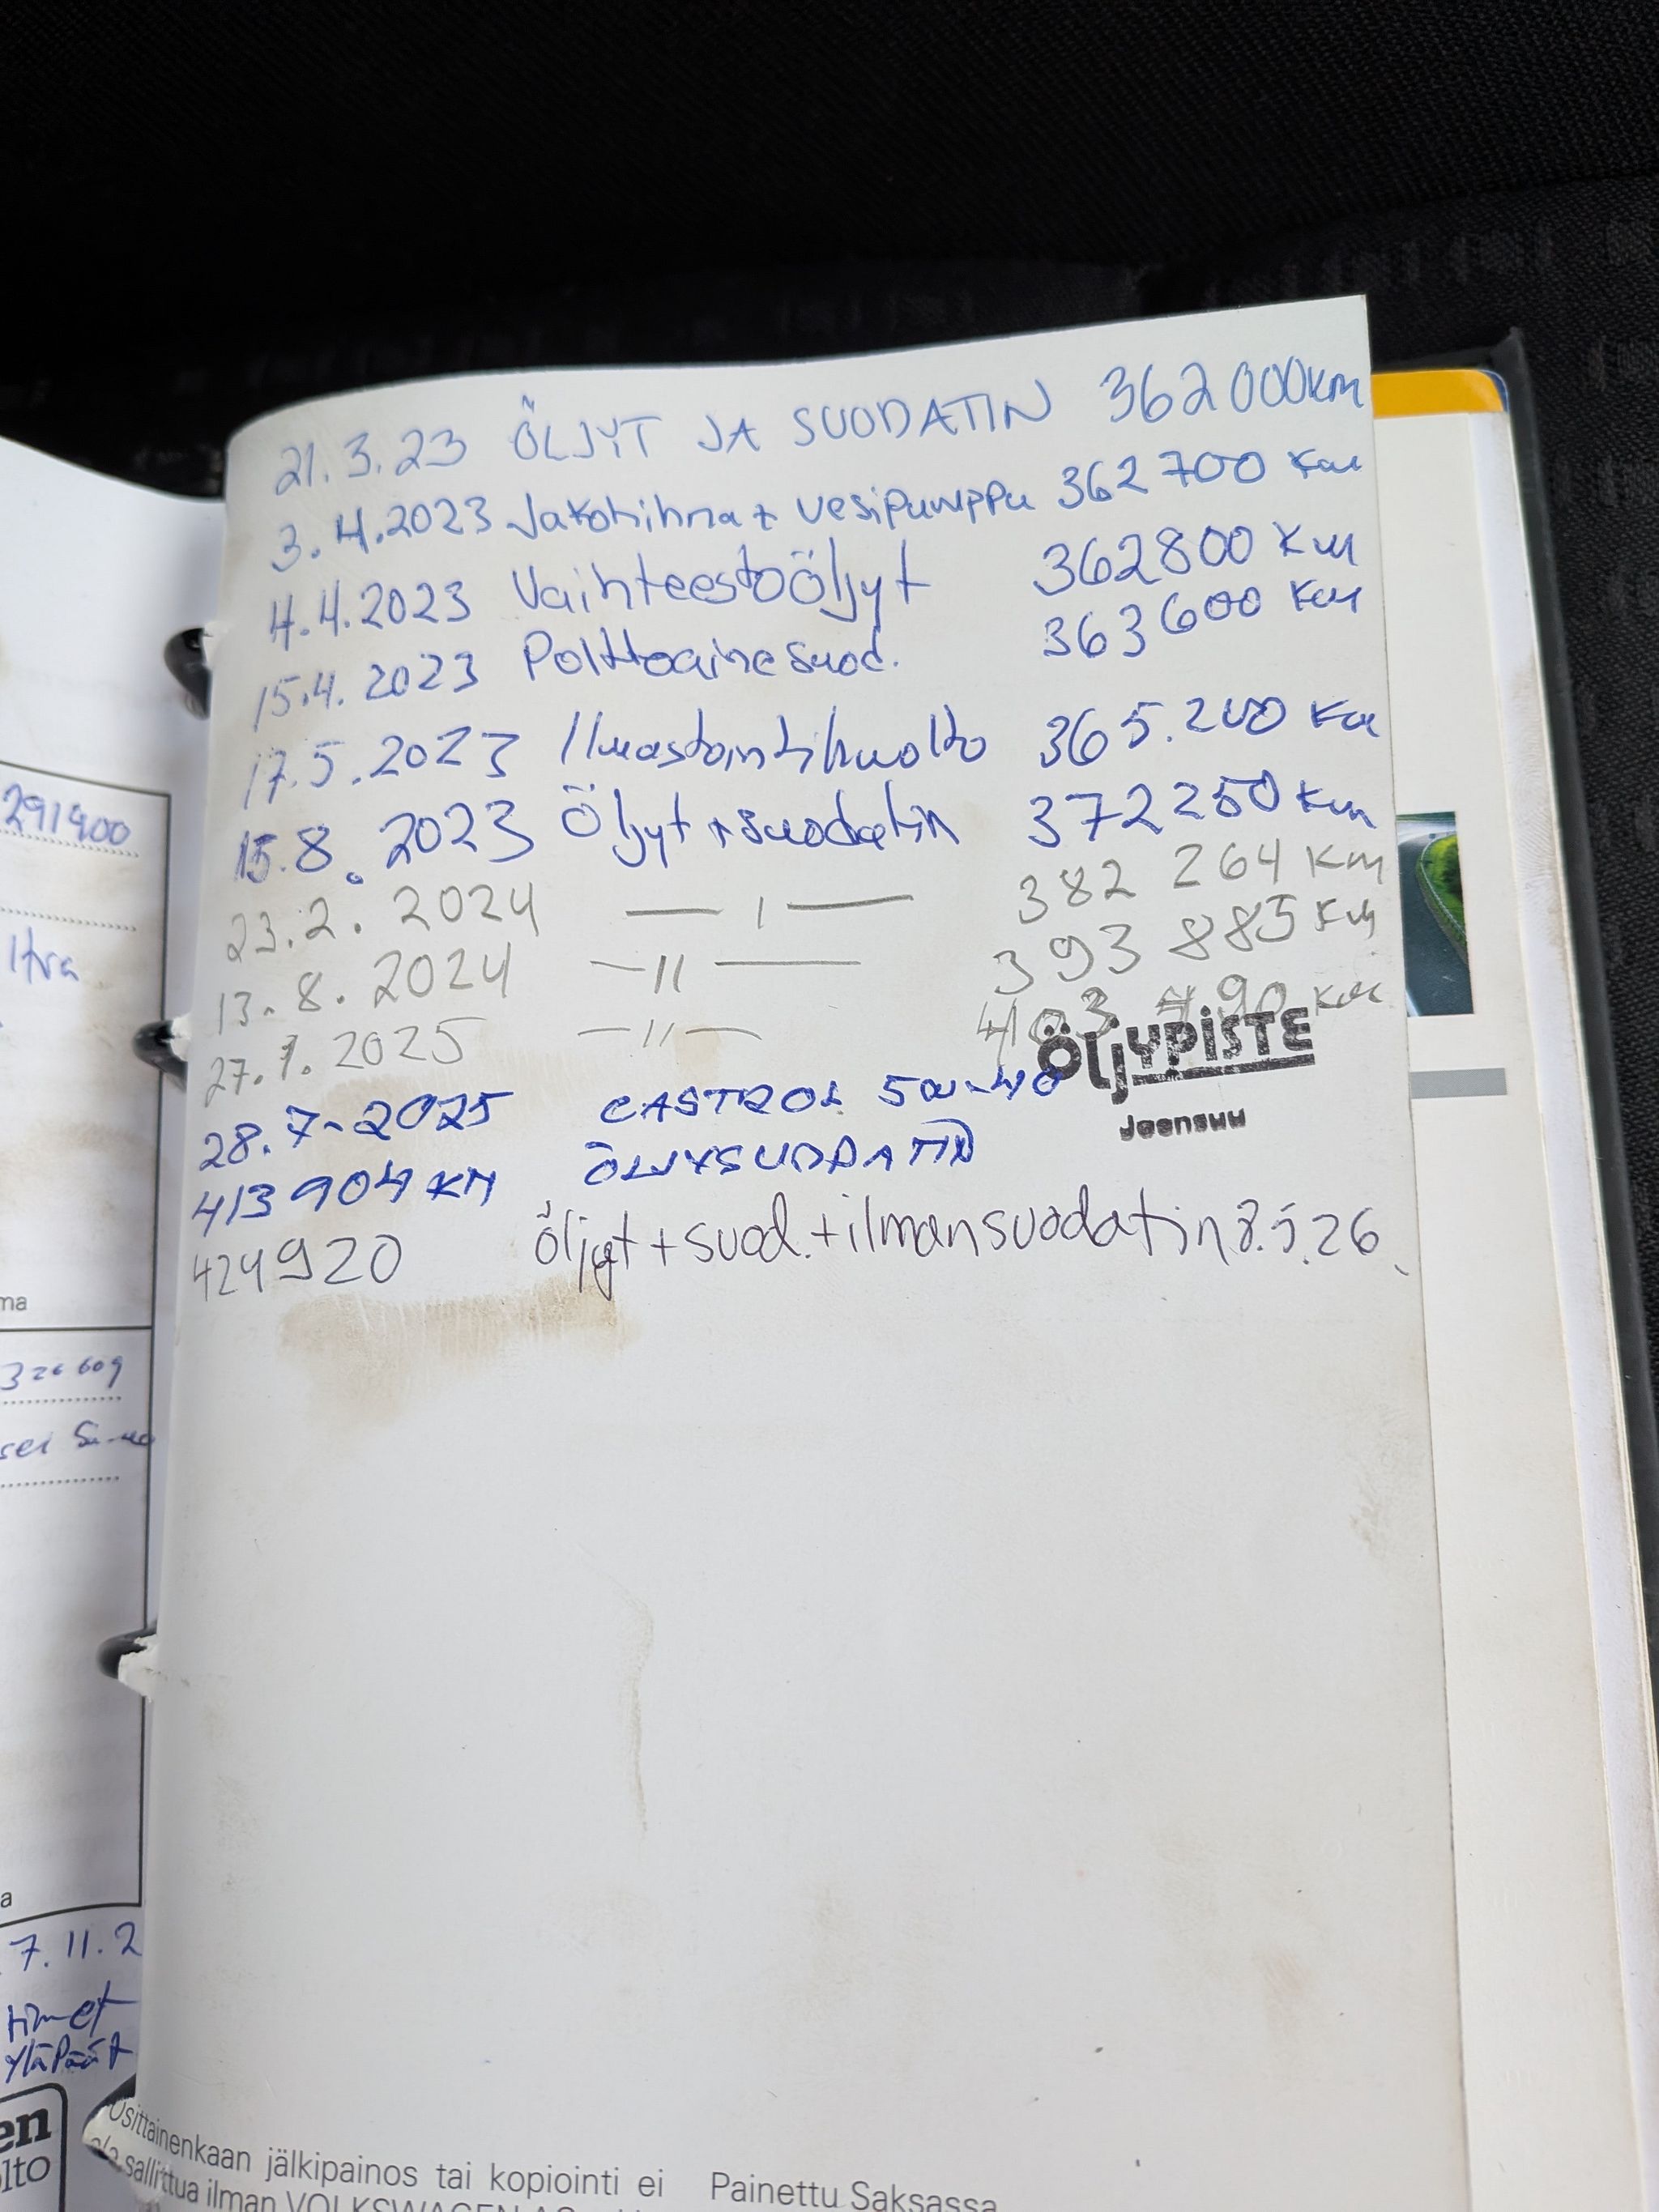 21.3.23 ÖLJYT JA SUODATIN 362000km
3.4.2023 Jakohihna + vesipumppu 362700 km
4.4.2023 Vaihteestoöljyt 362800 km
15.4.2023 Polttoainesuod. 363600 km
17.5.2023 Ilmastointihuolto 365.200 km
15.8.2023 Öljyt + suodatin 372250 km
23.2.2024 — ı — 382 264 km
13.8.2024 — ıı — 393 885 km
27.1.2025 — ıı — km
ÖljyPISTE
Joensuu
28.7-2025 CASTROL 5W-40
413904 KM ÖLJYSUODATIN
424920 öljyt + suod. + ilmansuodatin 8.5.26
291400
ma
a
7.11.2
yläpäät
en
lto
Osittainenkaan jälkipainos tai kopiointi ei
sallittua ilman VOLKSWAGEN AG
Painettu Saksassa